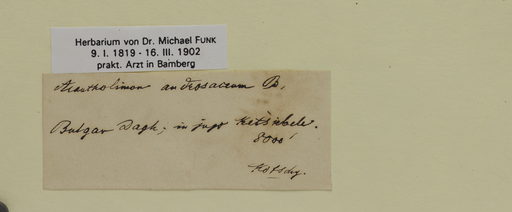 Herbarium von Dr. Michael FUNK
9. I. 1819 - 16. III. 1902
prakt. Arzt in Bamberg
Acantholimon androsaceum B.
Bulgar Dagh; in jugo
8000'
Kotschy.